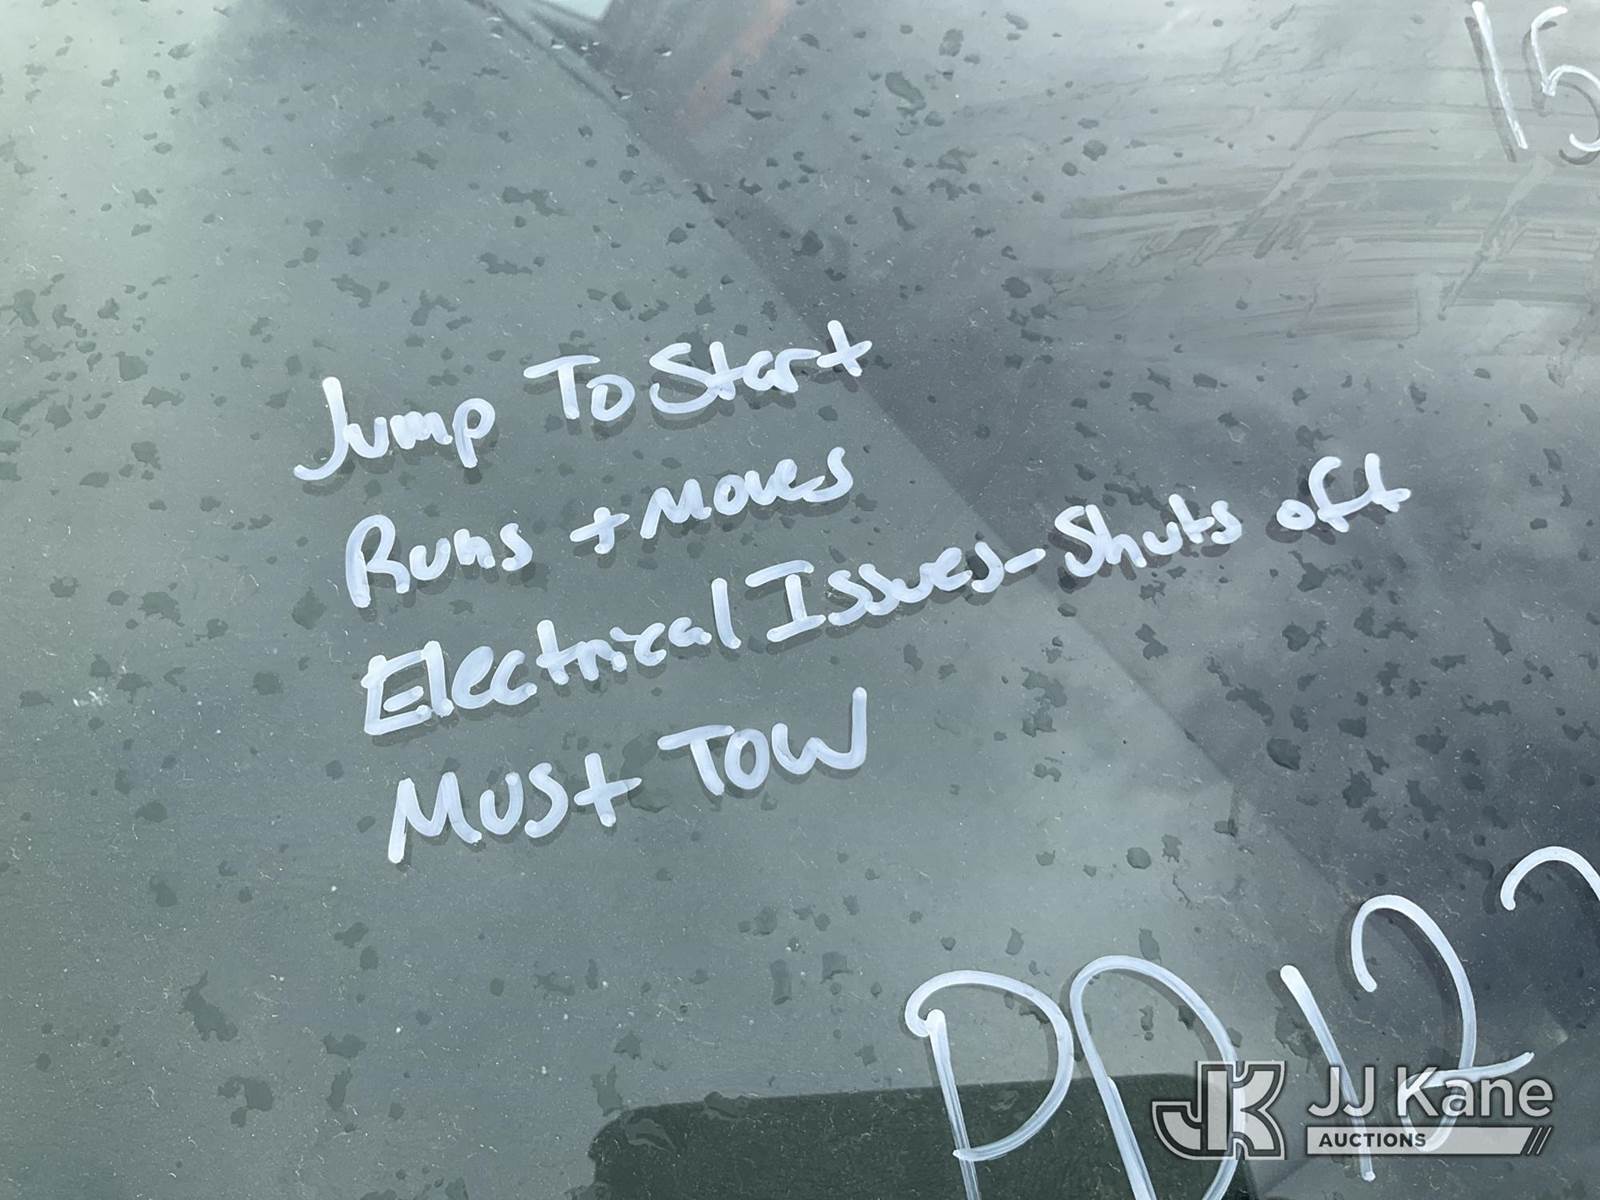 15
Jump To Start
Runs + Moves
Electrical Issues - Shuts off
Must TOW
PD12
JJ Kane
AUCTIONS